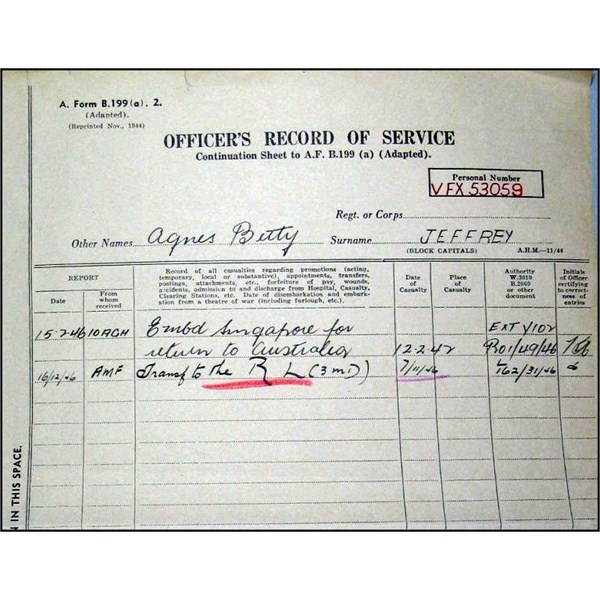 A. Form B.199 (a). 2.
(Adapted).
(Reprinted Nov., 1944)
OFFICER'S RECORD OF SERVICE
Continuation Sheet to A.F. B.199 (a) (Adapted).
Personal Number
VFX 53059
Regt. or Corps
Other Names Agnes Betty Surname JEFFREY
(BLOCK CAPITALS) A.H.M.—11/44
REPORT
Date
From whom received
Record of all casualties regarding promotions (acting,
temporary, local or substantive), appointments, transfers,
postings, attachments, etc., forfeiture of pay, wounds,
accidents, admission to and discharge from Hospital, Casualty,
Clearing Stations, etc. Date of disembarkation and embark-
ation from a theatre of war (including furlough, etc.).
Date of Casualty
Place of Casualty
Authority W.3019 B.2069 or other document
Initials of Officer certifying to correctness of entries
15-2-46 10AGH Embd Singapore for EXT Y102
return to Australia 12-2-42 RO1/49/46
16/12/46 AMF Transf to the R L (3 MD) 7/11/46 L162/31/46
N IN THIS SPACE.